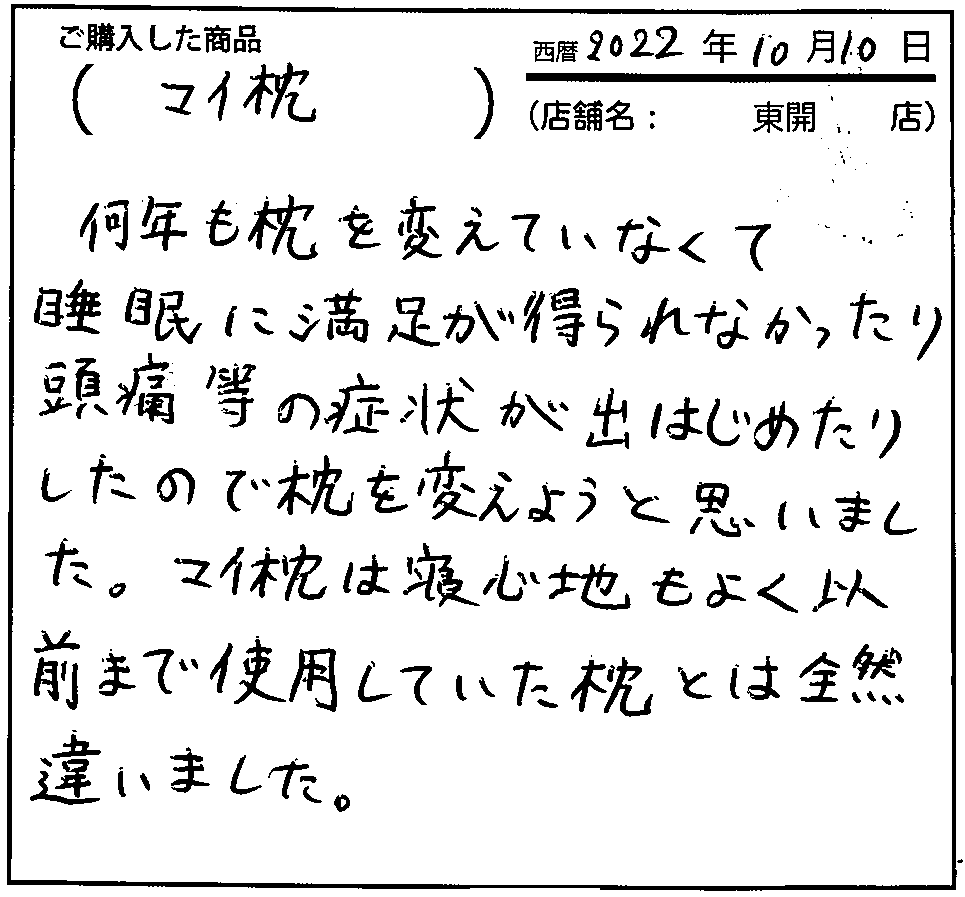 ご購入した商品
(マイ枕)
西暦2022年10月10日
(店舗名: 東開 店)
何年も枕を変えていなくて
睡眠に満足が得られなかったり
頭痛等の症状が出はじめたり
したので枕を変えようと思いまし
た。マイ枕は寝心地もよく以
前まで使用していた枕とは全然
違いました。